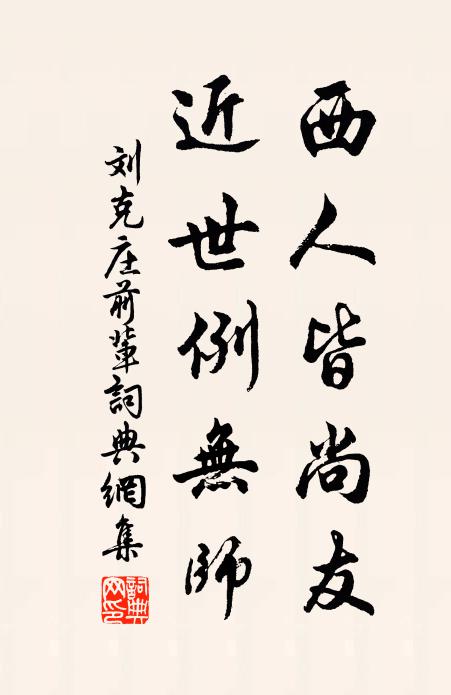 西人皆尚友
近世例無師
刘克庄前輩詞典網集
詞典网印